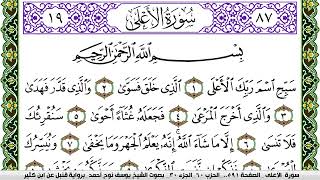 ١٩ سُورَةُ الأَعْلَى ٨٧
بِسْمِ اللَّهِ الرَّحْمَٰنِ الرَّحِيمِ
سَبِّحِ اسْمَ رَبِّكَ الْأَعْلَى ١ الَّذِي خَلَقَ فَسَوَّىٰ ٢ وَالَّذِي قَدَّرَ فَهَدَىٰ
٣ وَالَّذِي أَخْرَجَ الْمَرْعَىٰ ٤ فَجَعَلَهُ غُثَاءً أَحْوَىٰ ٥ سَنُقْرِئُكَ
فَلَا تَنسَىٰ ٦ إِلَّا مَا شَاءَ اللَّهُ إِنَّهُ يَعْلَمُ الْجَهْرَ وَمَا يَخْفَىٰ ٧ وَنُيَسِّرُكَ
سورة الاعلى الصفحة ٥٩١ الحزب ٦٠ الجزء ٣٠ بصوت الشيخ يوسف نوح أحمد برواية قنبل عن ابن كثير